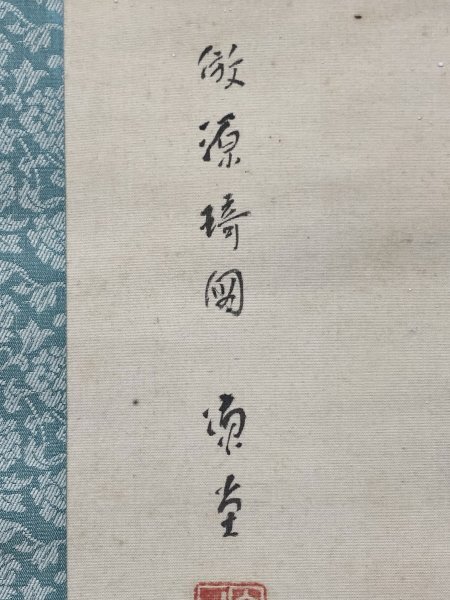 倣源琦圖 堂